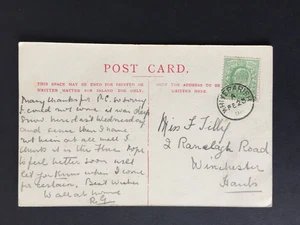 POST CARD.
THIS SPACE MAY BE USED FOR PRINTED OR
WRITTEN MATTER FOR INLAND USE ONLY.
THE ADDRESS TO BE
WRITTEN HERE.
Many thanks for P.C. So sorry
I could not come it was deep
Snow here last Wednesday
and since then I have
not been at all well I
thanks it is the Flue Hope
to feel better soon will
let you know when I come
for certain, Best Wishes
to all at home
R.G
Miss F Tilly
2 Ranelagh Road
Winchester
Hants